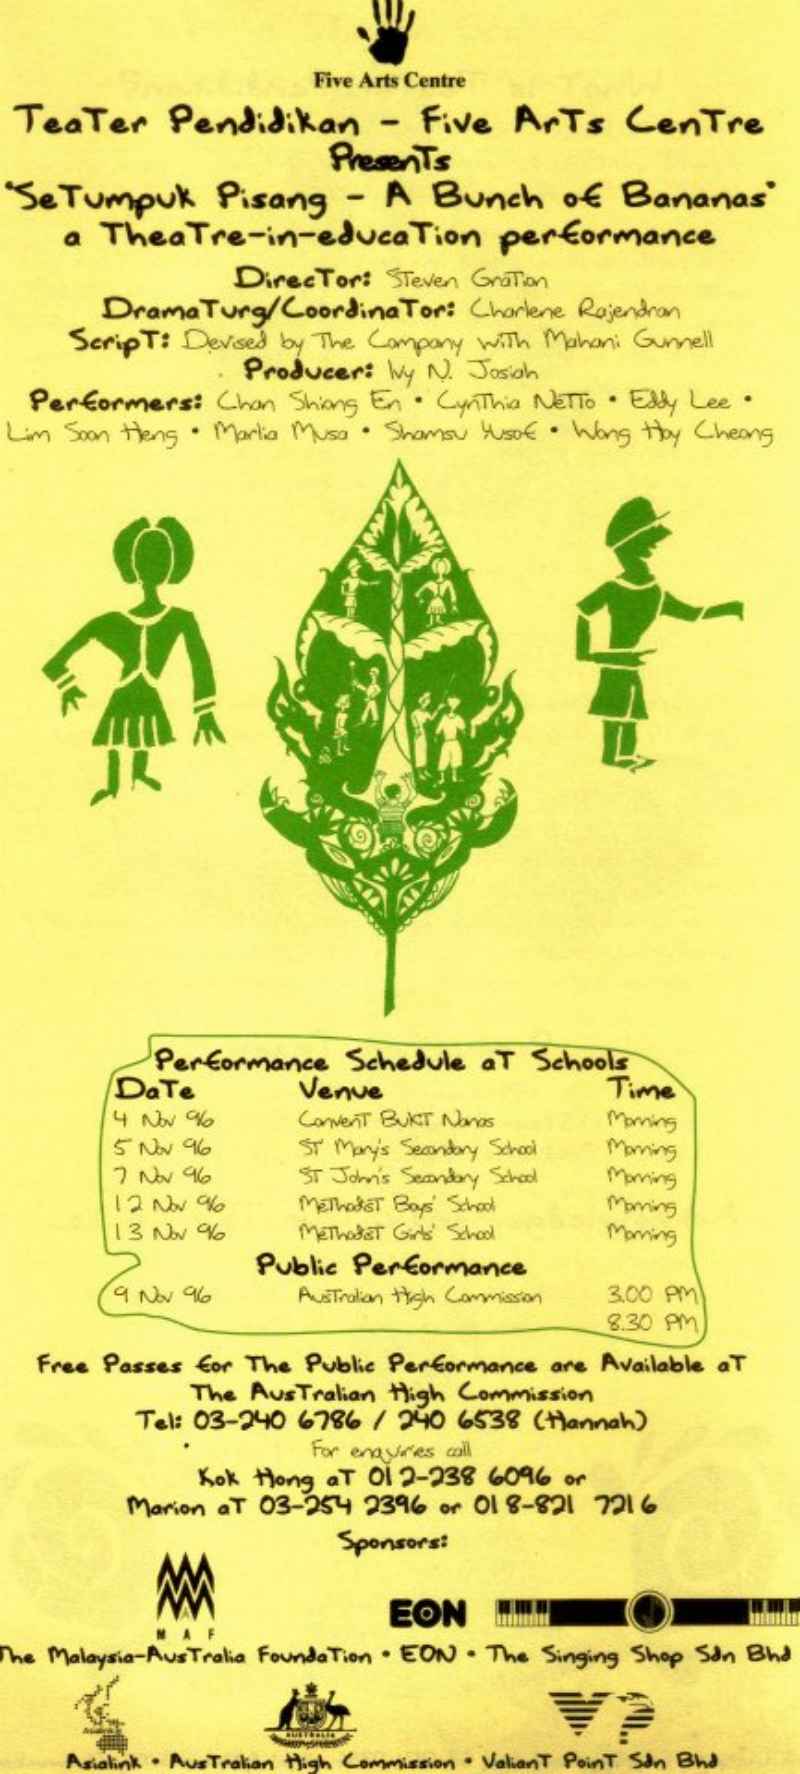 Five Arts Centre
Teater Pendidikan - Five Arts Centre
Presents
'Setumpuk Pisang - A Bunch of Bananas'
a Theatre-in-education performance
Director: Steven Gration
Dramaturg/Coordinator: Charlene Rajendran
Script: Devised by The Company with Mahani Gunnell
Producer: Ivy N. Josiah
Performers: Chan Shiang En • Cynthia Netto • Eddy Lee •
Lim Soon Heng • Marlia Musa • Shamsu Yusof • Wong Hoy Cheong
Performance Schedule at Schools
Date Venue Time
4 Nov 96 Convent Bukt Nanas Morning
5 Nov 96 St Mary's Secondary School Morning
7 Nov 96 St John's Secondary School Morning
12 Nov 96 Methodist Boys' School Morning
13 Nov 96 Methodist Girls' School Morning
Public Performance
9 Nov 96 Australian High Commission 3.00 PM
8.30 PM
Free Passes for The Public Performance are Available at
The Australian High Commission
Tel: 03-240 6786 / 240 6538 (Hannah)
For enquiries call
Kok Hong at 012-238 6096 or
Marion at 03-254 2396 or 018-821 7216
Sponsors:
MAF
EON
The Malaysia-Australia Foundation • EON • The Singing Shop Sdn Bhd
Asialink
AUSTRALIA
Asialink • Australian High Commission • Valiant Point Sdn Bhd